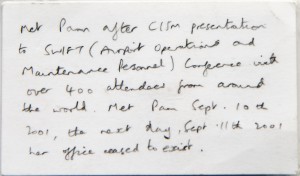 Met Pam after CISM presentation
to SWIFT (Airport Operations and
Maintenance Personnel) Conference with
over 400 attendees from around
the world. Met Pam Sept. 10th
2001, the next day, Sept. 11th 2001
her office ceased to exist.